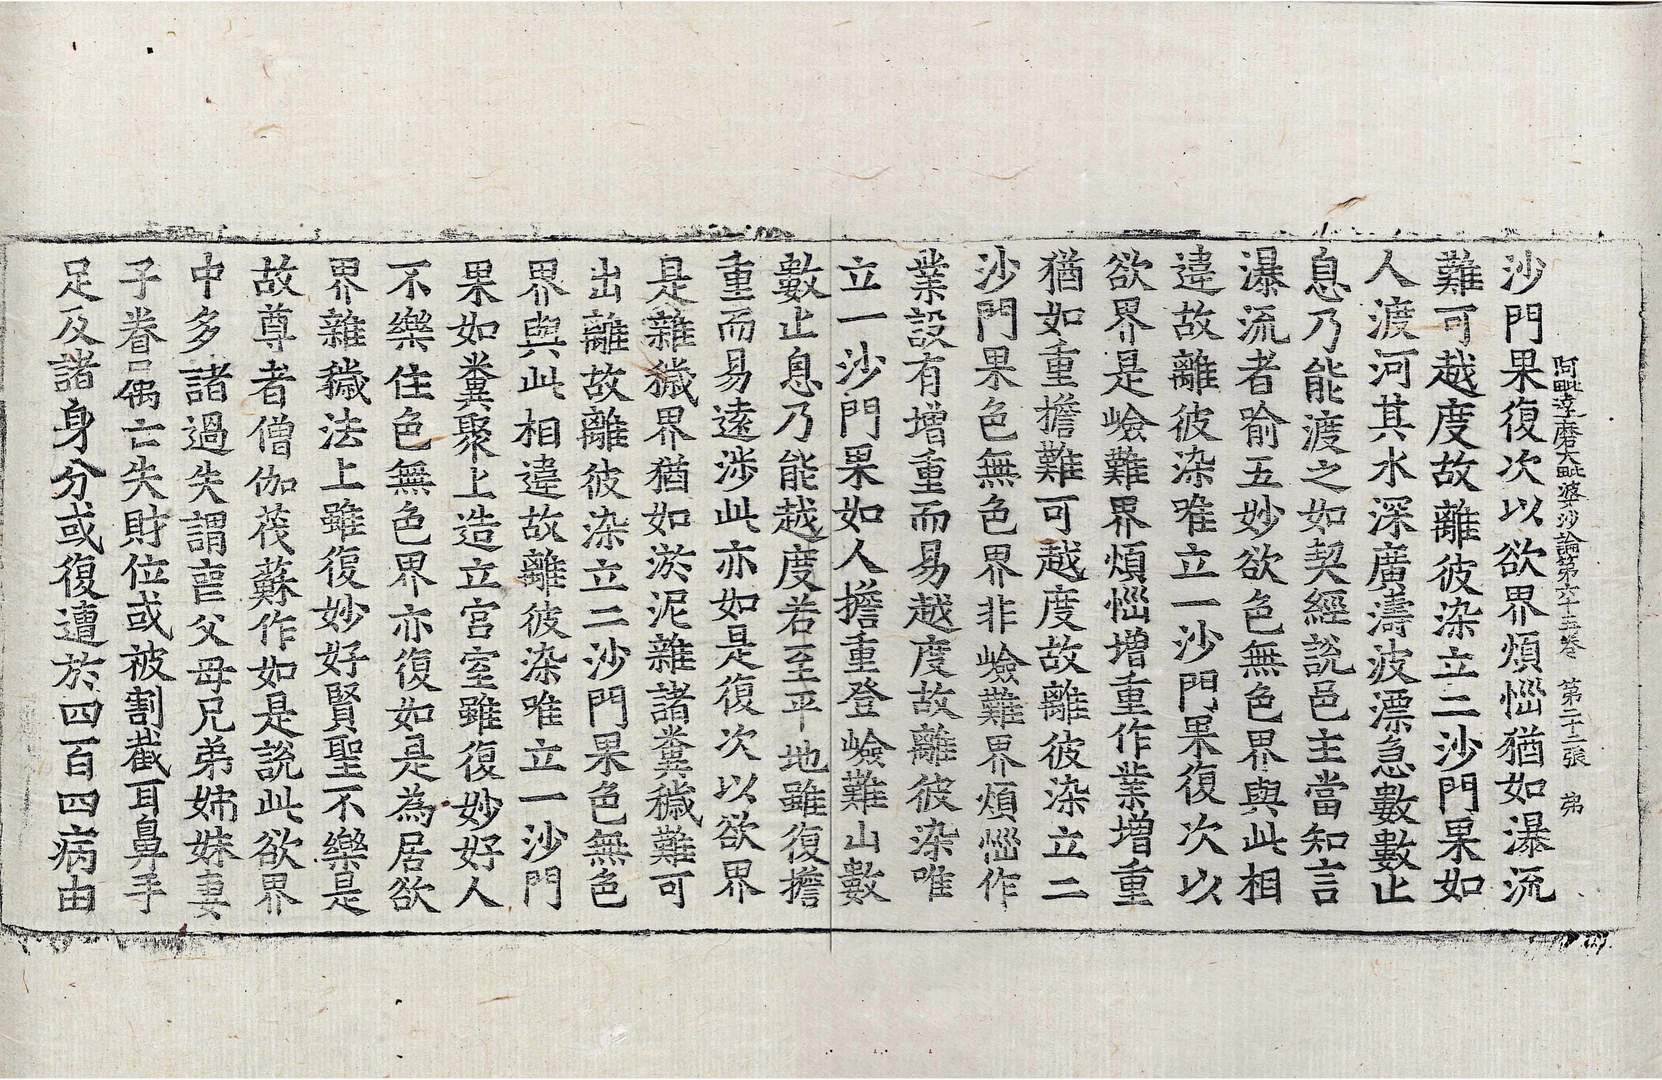 阿毗達磨大毗婆沙論第六十五卷 第二十二張 弟
沙門果復次以欲界煩惱猶如瀑流
難可越度故離彼染立二沙門果如
人渡河其水深廣濤波漂急數數止
息乃能渡之如契經說邑主當知言
瀑流者喻五妙欲色無色界與此相
違故離彼染唯立一沙門果復次以
欲界是嶮難界煩惱增重作業增重
猶如重擔難可越度故離彼染立二
沙門果色無色界非嶮難界煩惱作
業設有增重而易越度故離彼染唯
立一沙門果如人擔重登嶮難山數
數止息乃能越度若至平地雖復擔
重而易遠涉此亦如是復次以欲界
是雜穢界猶如淤泥雜諸糞穢難可
出離故離彼染立二沙門果色無色
界與此相違故離彼染唯立一沙門
果如糞聚上造立宮室雖復妙好人
不樂住色無色界亦復如是為居欲
界雜穢法上雖復妙好賢聖不樂是
故尊者僧伽茷蘇作如是說此欲界
中多諸過失謂喪父母兄弟姊妹妻
子眷屬亡失財位或被割截耳鼻手
足及諸身分或復遭於四百四病由